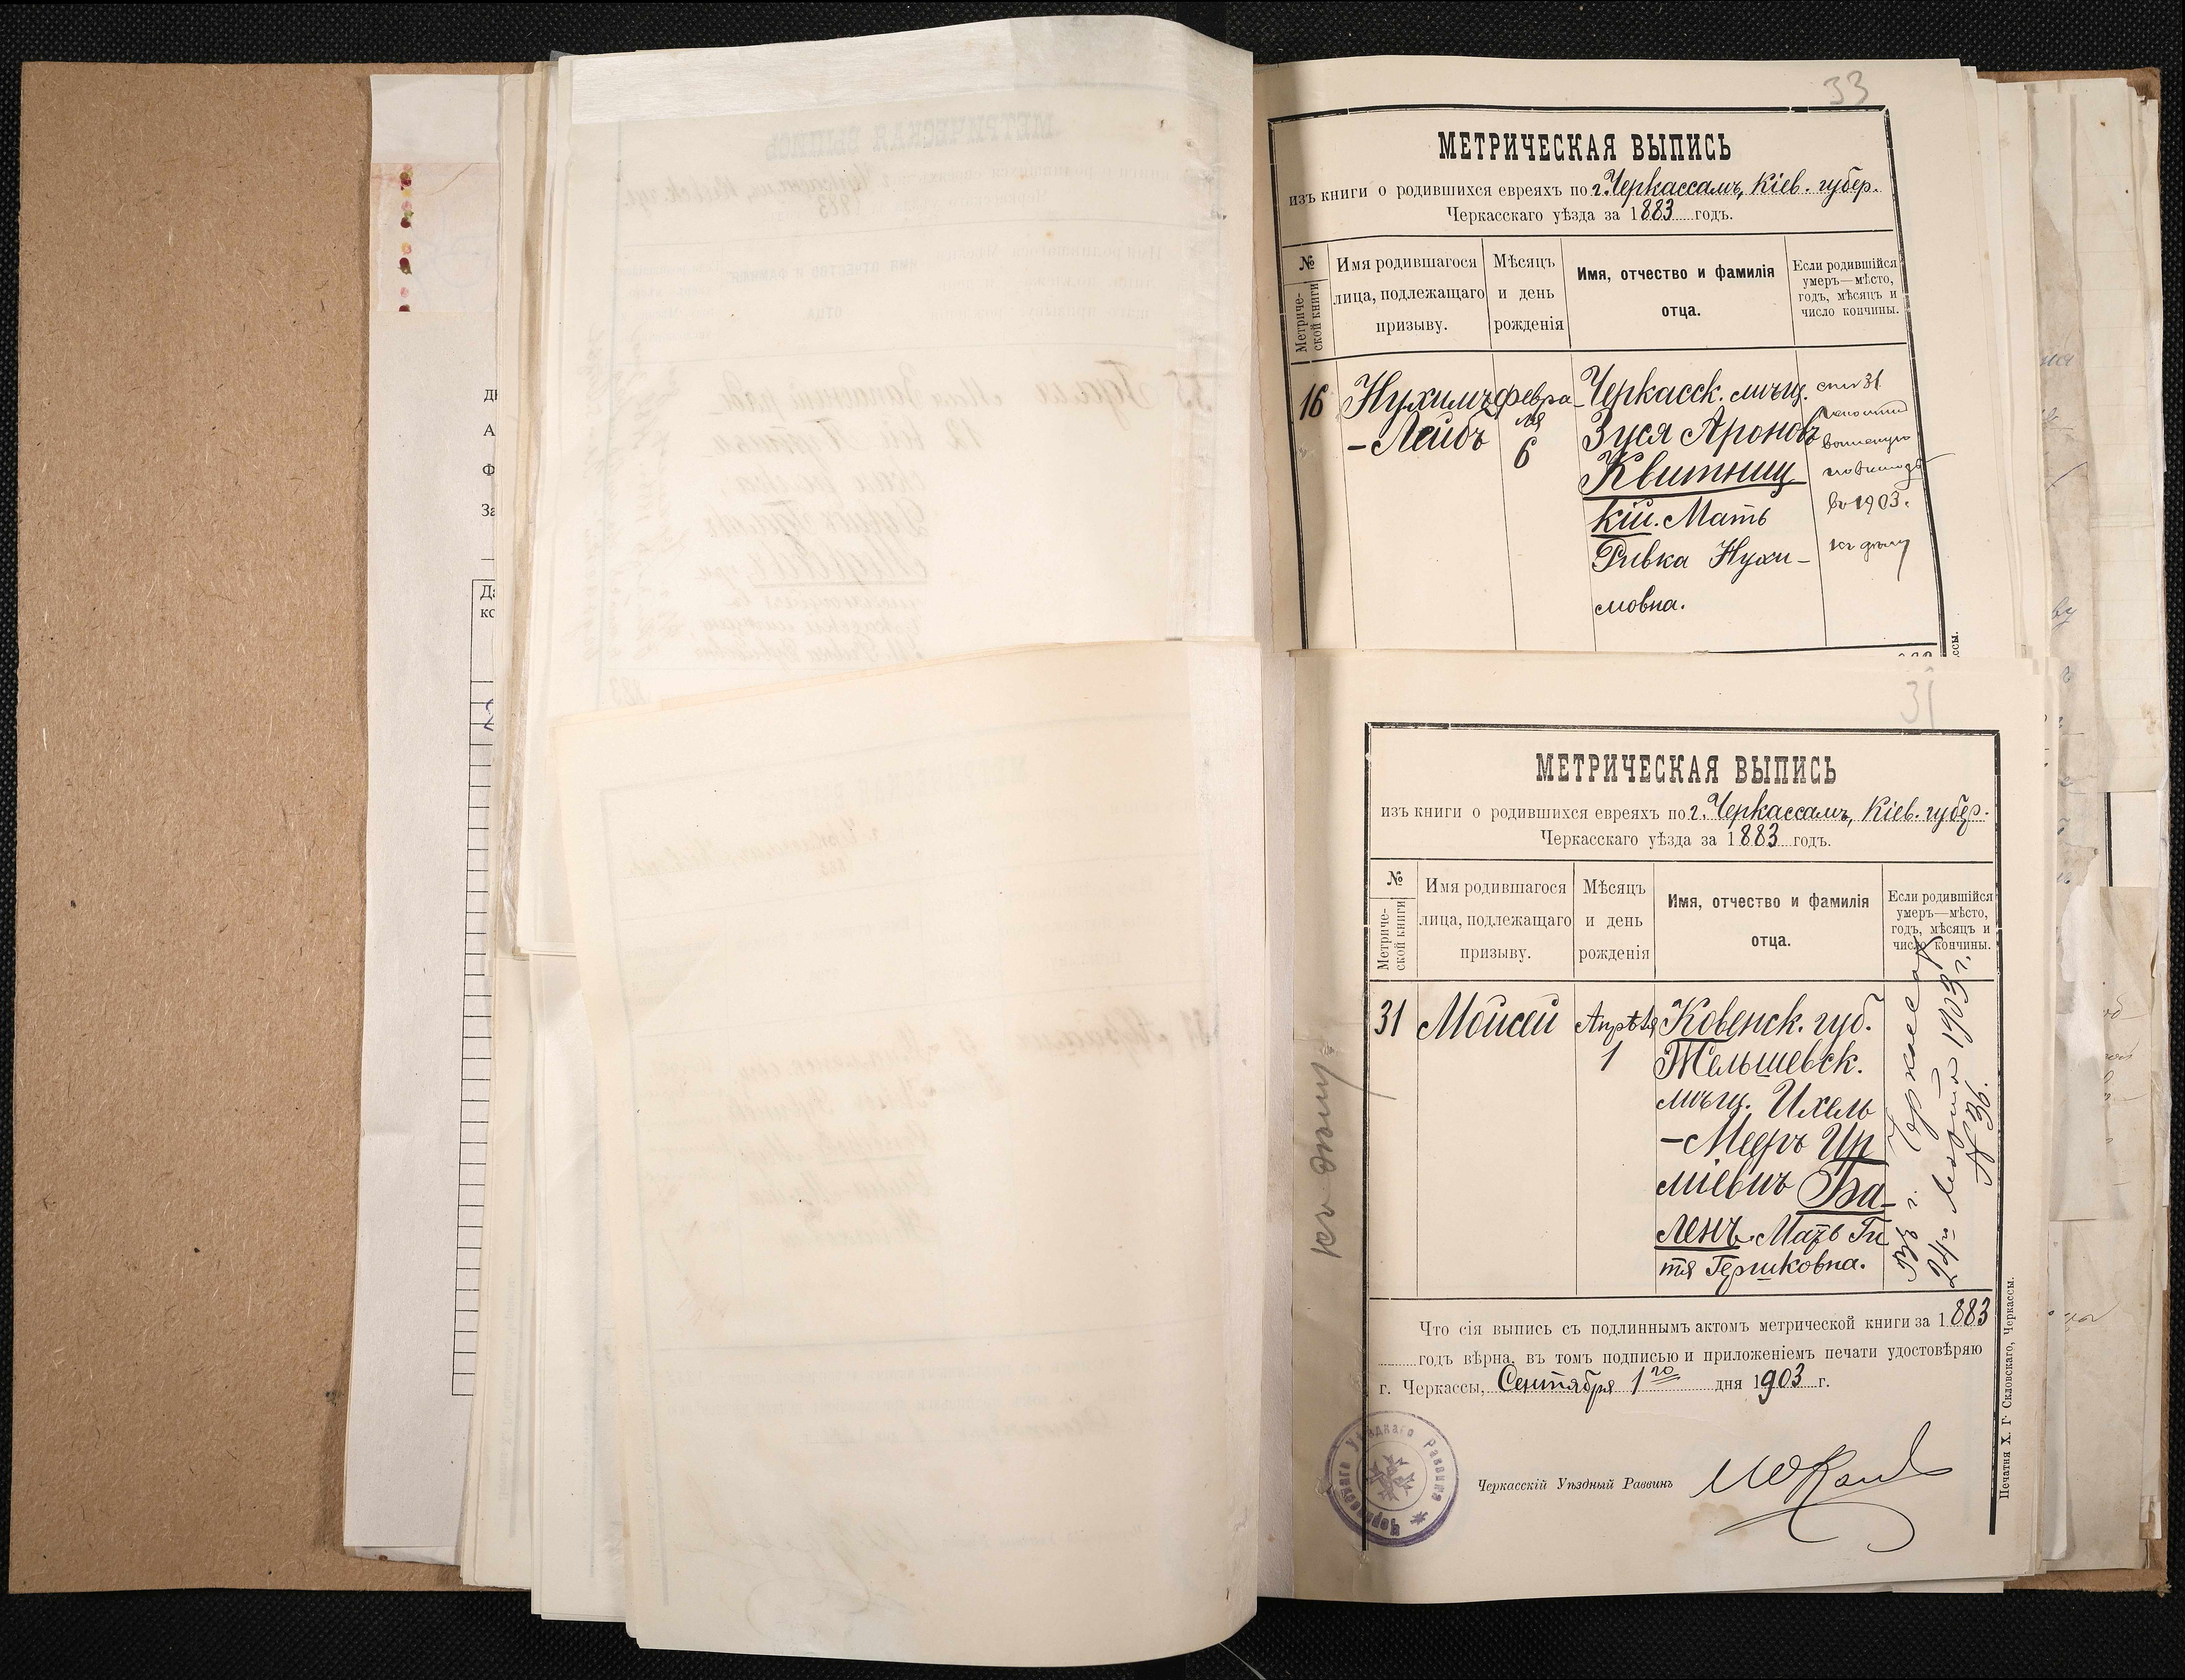 33
МЕТРИЧЕСКАЯ ВЫПИСЬ
изъ книги о родившихся евреяхъ по г. Черкассамъ, Кіев. губер.
Черкасскаго уѣзда за 1883 годъ.
№ Метриче-ской книги
Имя родившагося лица, подлежащаго призыву.
Мѣсяцъ и день рожденія
Имя, отчество и фамилія отца.
Если родившійся умеръ—мѣсто, годъ, мѣсяцъ и число кончины.
16 Нухимъ Февра- Черкасск. мѣщ.
-Лейбъ ля Зуся Ароновъ
6 Квитниц
кій. Мать
Ривка Нухи-
мовна.
въ 1903.
31
МЕТРИЧЕСКАЯ ВЫПИСЬ
изъ книги о родившихся евреяхъ по г. Черкассамъ, Кіев. губер.
Черкасскаго уѣзда за 1883 годъ.
№ Метриче-ской книги
Имя родившагося лица, подлежащаго призыву.
Мѣсяцъ и день рожденія
Имя, отчество и фамилія отца.
Если родившійся умеръ—мѣсто, годъ, мѣсяцъ и число кончины.
31 Мойсей Апрѣля Ковенск. губ.
1 Тельшевск.
мѣщ. Ихель
-Мееръ Ир
міевичъ Ба-
ленъ. Мать Ги
тя Гершковна.
Въ г. Черкассах
1903 г.
№ 36.
Что сія выпись съ подлиннымъ актомъ метрической книги за 1883
годъ вѣрна, въ томъ подписью и приложеніемъ печати удостовѣряю
г. Черкассы, Сентября 1го дня 1903 г.
Черкасскаго Уѣзднаго Раввина
Черкасскій Уѣздный Раввинъ
Печатня Х. Г. Скловскаго, Черкассы.